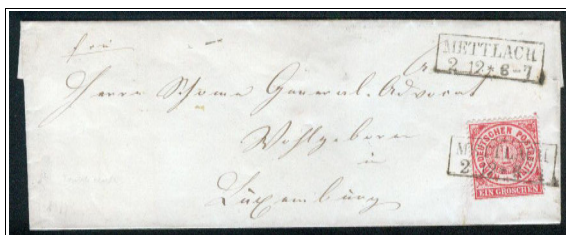 frei
METTLACH
2 12 * 6-7
Herrn Thoma General-Advocat
Wohlgeboren
in
Luxemburg
NORDDEUTSCHER POSTBEZIRK
1
EIN GROSCHEN